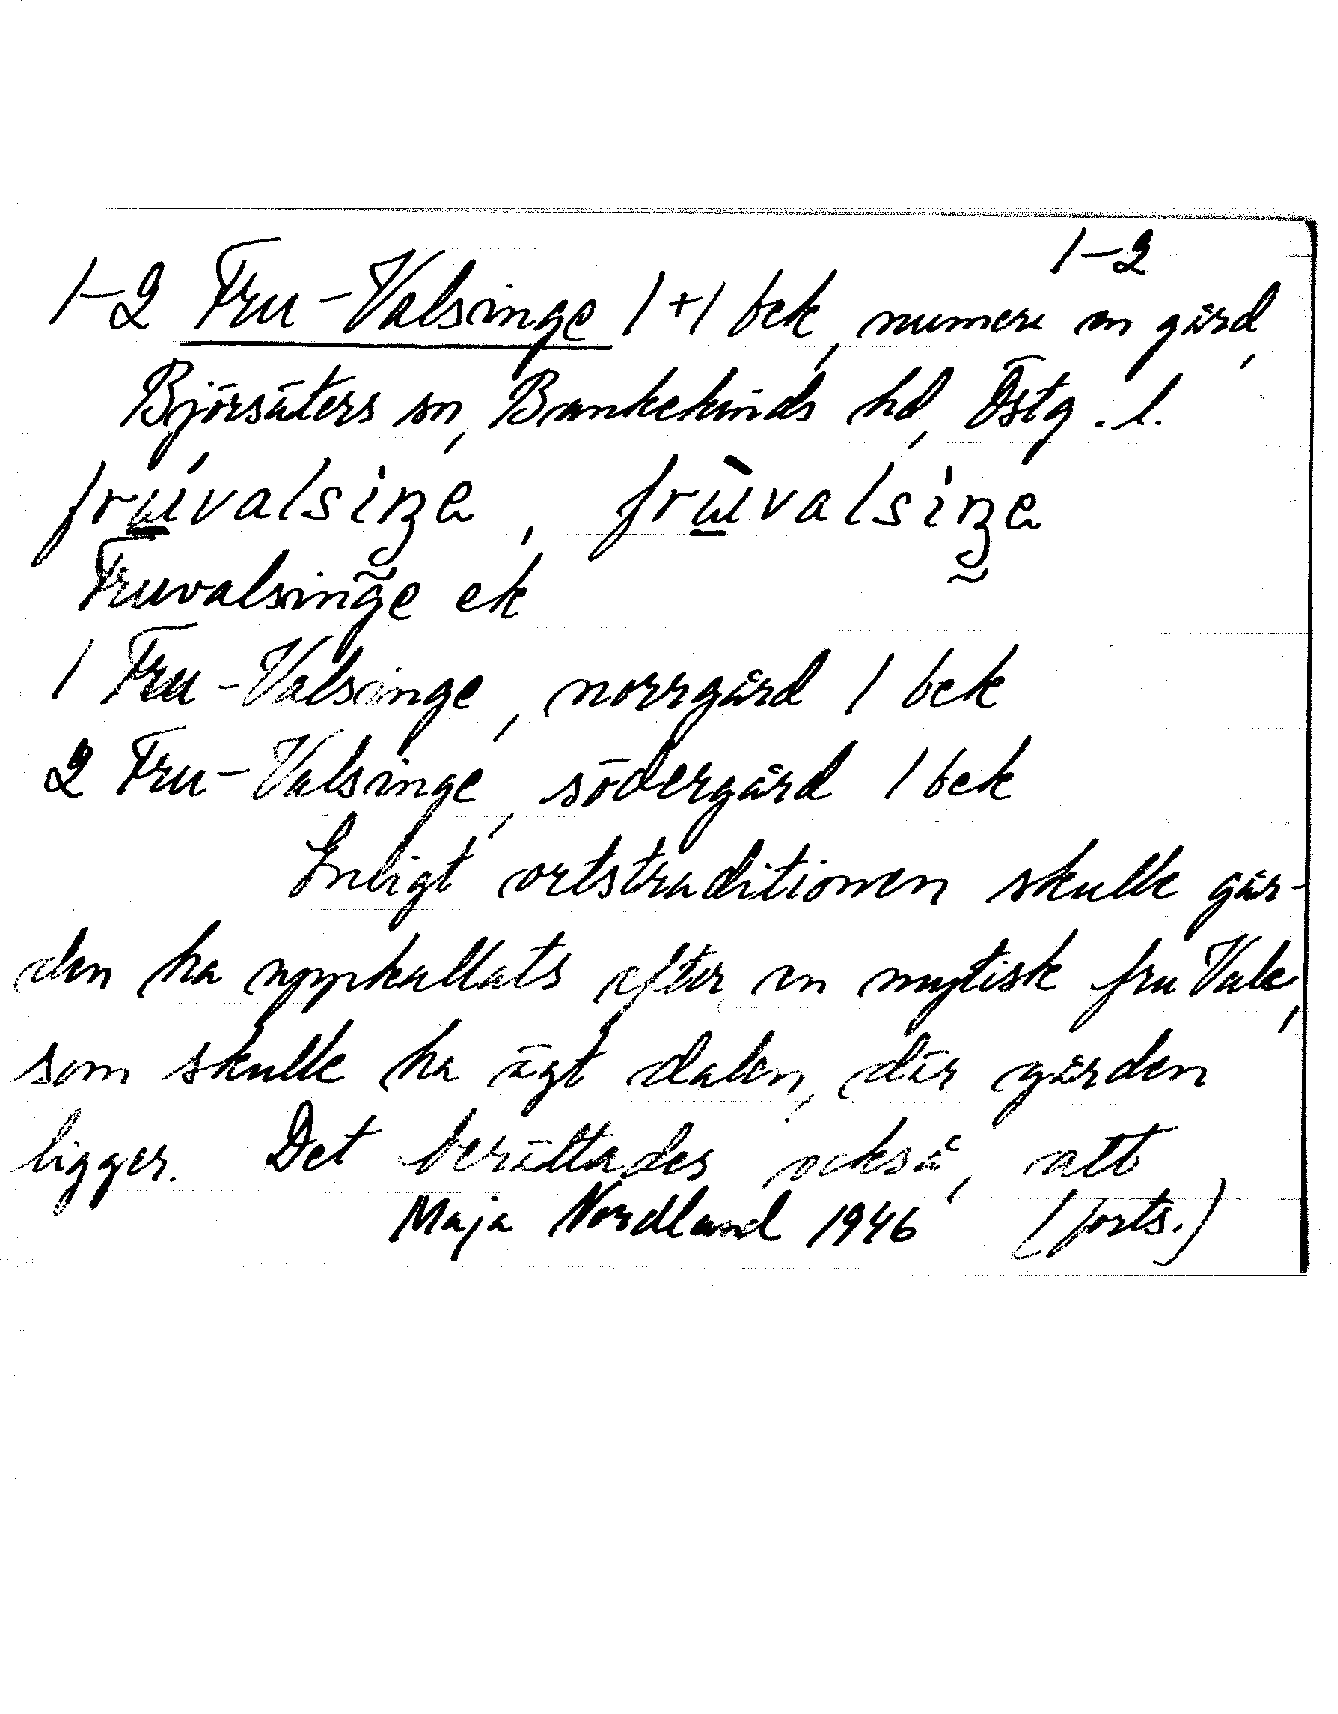 1-2
1-2 Fru-Valsinge 1+1 bek, numera en gård,
Björsäters sn, Bankekinds hd, Östg. l.
Fruvalsinge ek
1 Fru-Valsinge, norrgård 1 bek
2 Fru-Valsinge, södergård 1 bek
Enligt ortstraditionen skulle går-
den ha uppkallats efter en mytisk fru Vale,
som skulle ha ägt dalen, där gården
ligger. Det berättades också, att
Maja Nordland 1946 (forts.)